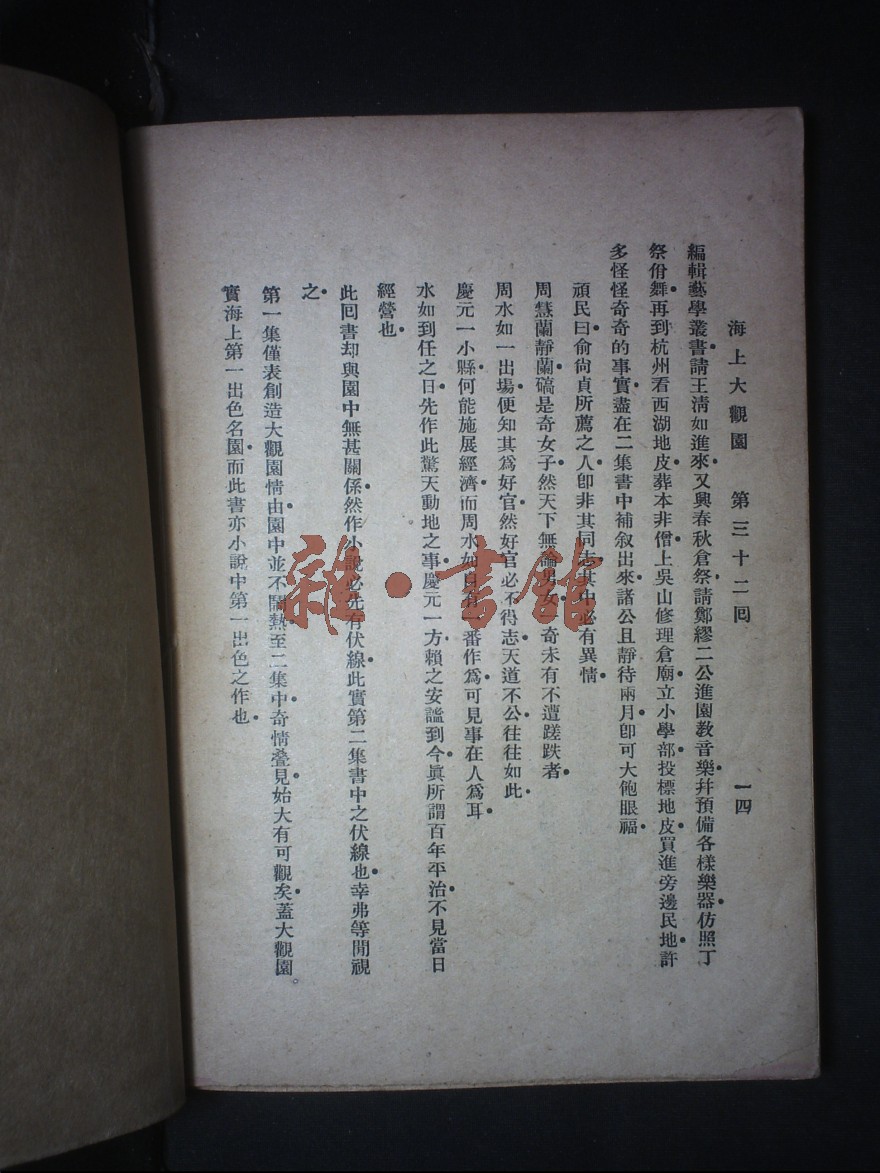 海上大觀園 第三十二回 一四
編輯藝學叢書•請王淸如進來•又興春秋倉祭•請鄭繆二公進園教音樂•幷預備各樣樂器•仿照丁
祭佾舞•再到杭州看西湖地皮•葬本非僧•上吳山修理倉廟•立小學部•投標地皮•買進旁邊民地•許
多怪怪奇奇的事實•盡在二集書中補叙出來•諸公且靜待兩月•卽可大飽眼福•
頑民曰•俞尙貞所薦之人•卽非其同志•其中必有異情•
周慧蘭靜蘭•碻是奇女子•然天下無論男女•奇未有不遭蹉跌者•
周水如一出場•便知其爲好官•然好官必不得志•天道不公•往往如此•
慶元一小縣•何能施展經濟•而周水如自有一番作爲•可見事在人爲耳•
水如到任之日•先作此驚天動地之事•慶元一方•賴之安謐到今•眞所謂百年平治•不見當日
經營也•
此回書却與園中無甚關係•然作小說必先有伏線•此實第二集書中之伏線也•幸弗等閒視
之•
第一集僅表創造大觀園情由•園中並不鬧熱•至二集中•奇情叠見•始大有可觀矣•蓋大觀園。
實海上第一出色名園•而此書亦小說中第一出色之作也•
雜•書館